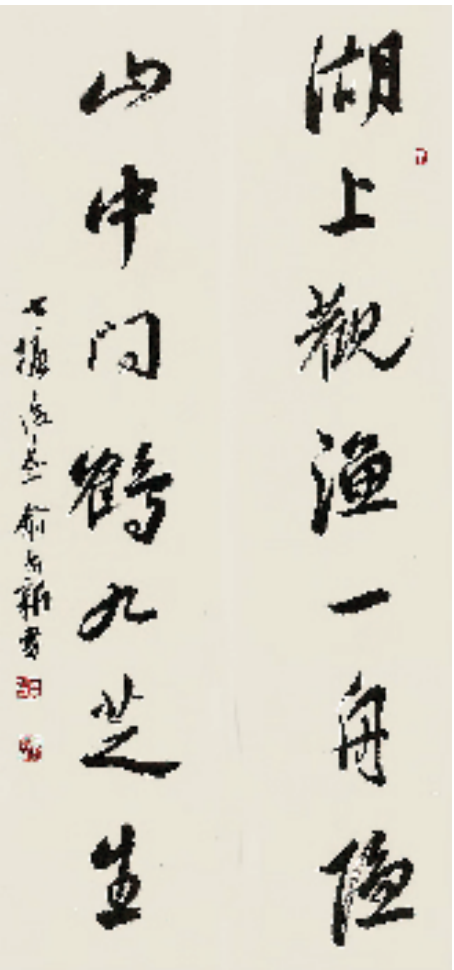 湖上觀漁一舟隱
山中問鶴九芝生
俞 新書